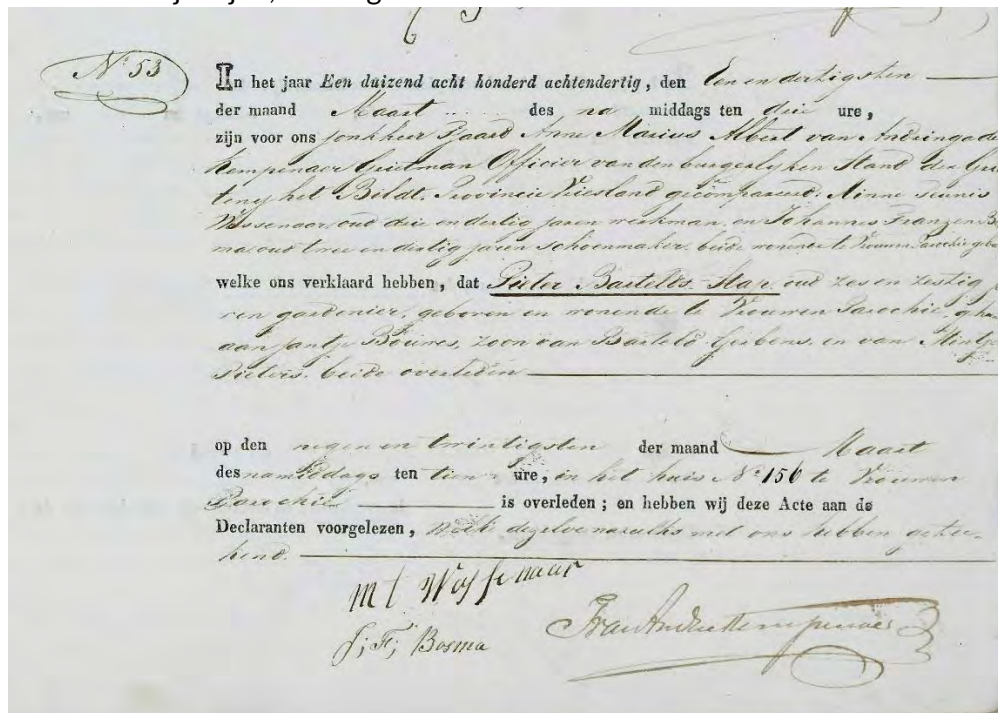 N° 53
In het jaar Een duizend acht honderd achtendertig, den Eenendertigsten
der maand Maart des na middags ten drie ure,
zijn voor ons Jonkheer Tjaard Anne Marius Albert van Andringa de
Kempenaer Grietman Officier van den burgerlyken Stand der Grie
teny het Bildt, Provincie Vriesland gecompareerd: Minne Teunis
Wassenaar, oud drie endertig jaren werkman, en Johannes Franzen Bos
ma, oud twee endertig jaren schoenmaker, beide wonende te Vrouwen Parochie
welke ons verklaard hebben, dat Pieter Bartelds Stap, oud zes en zestig ja
ren gardenier, geboren en wonende te Vrouwen Parochie,
aan Jantje Bouwes, zoon van Barteld Gerbens, en van Mintje
Pieters, beide overleden
op den negen en twintigsten der maand Maart
des namiddags ten tien ure, in het huis N° 156 te Vrouwen
Parochie is overleden; en hebben wij deze Acte aan de
Declaranten voorgelezen, welke dezelve met ons hebben getee-
kend.
M t Wassenaar
J; F; Bosma